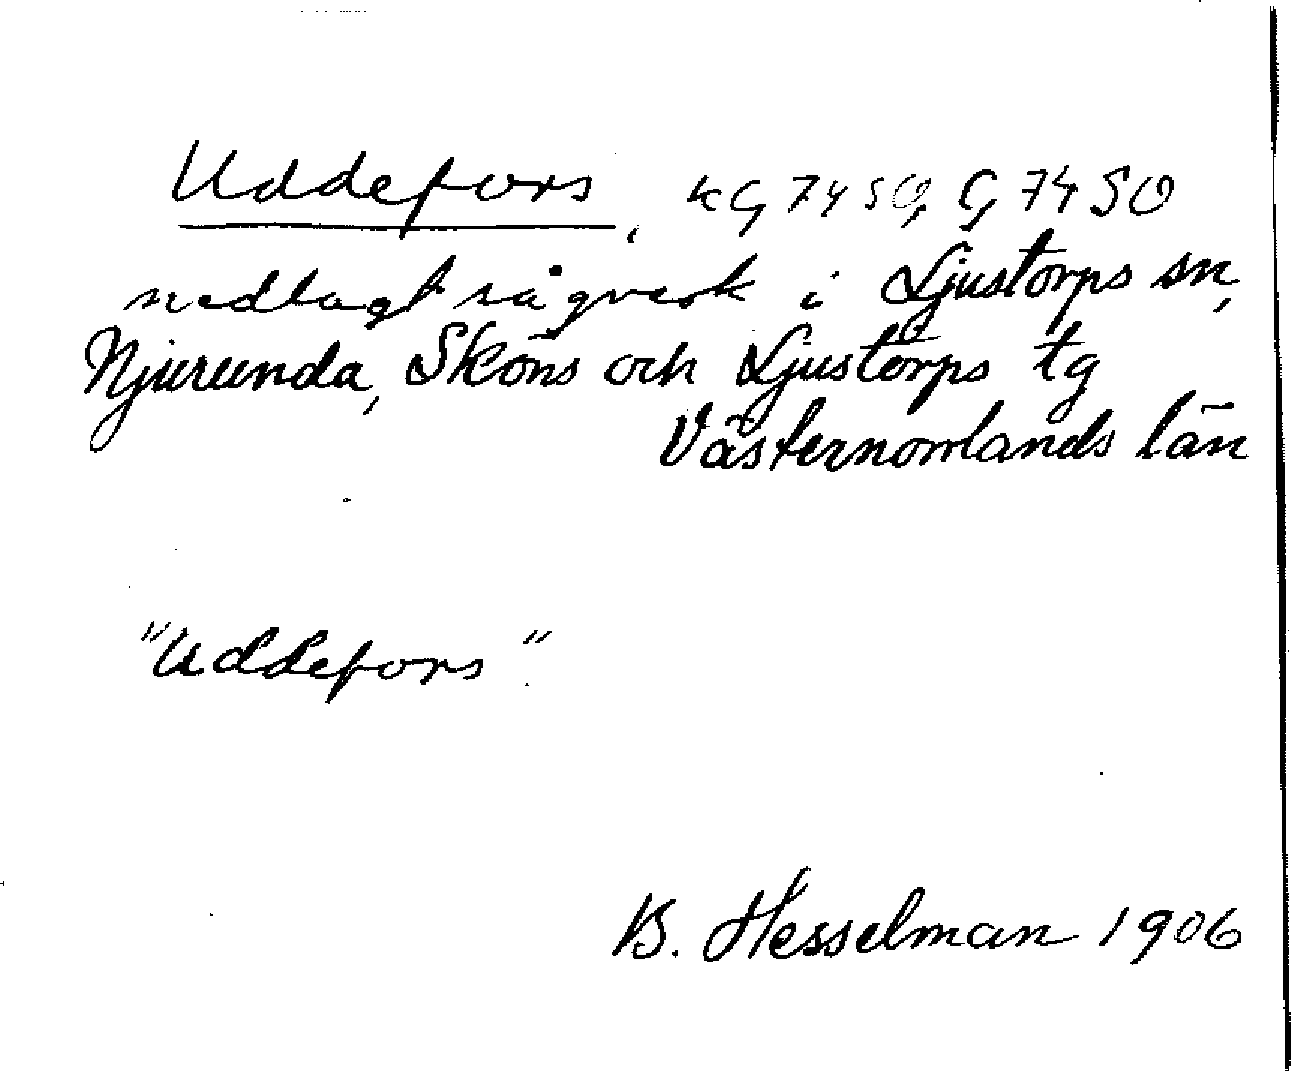 Uddefors, KG 74 SO, G 74 SO
nedlagt sågverk i Ljustorps sn,
Njurunda, Sköns och Ljustorps tg
Västernorrlands län
"Uddefors".
B. Hesselman 1906